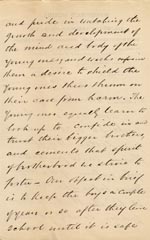 and pride in watching the
growth and development of
the mind and body of the
young men, and wakes up in
them a desire to shield the
young ones thus thrown on
their care from harm. The
young ones equally learn to
look up to confide in and
trust their bigger brothers,
and cements that spirit
of brotherhood we strive to
foster. Our object in being
is to keep the boys a couple
of years or so after they leave
school until it is safe